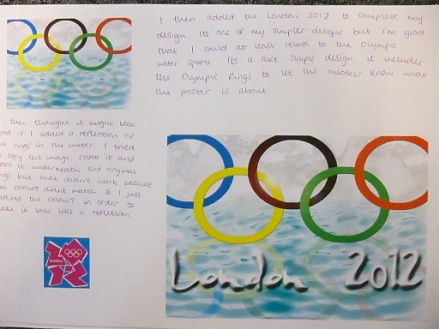 I then added the London 2012 to complete my
design. Its one of my simpler designs but I'm glad
that I could at least relate to the Olympic
water sports. Its a nice simple design, it includes
the Olympic Rings to let the onlooker know what
the poster is about.
then thought it might look
if I added a reflection of
rings in the water. I tried
copy this image, rotate it and
it underneath the original
but that didn't work because
colours didn't match. So I just
the colours in order to
it look like a reflection
London 2012